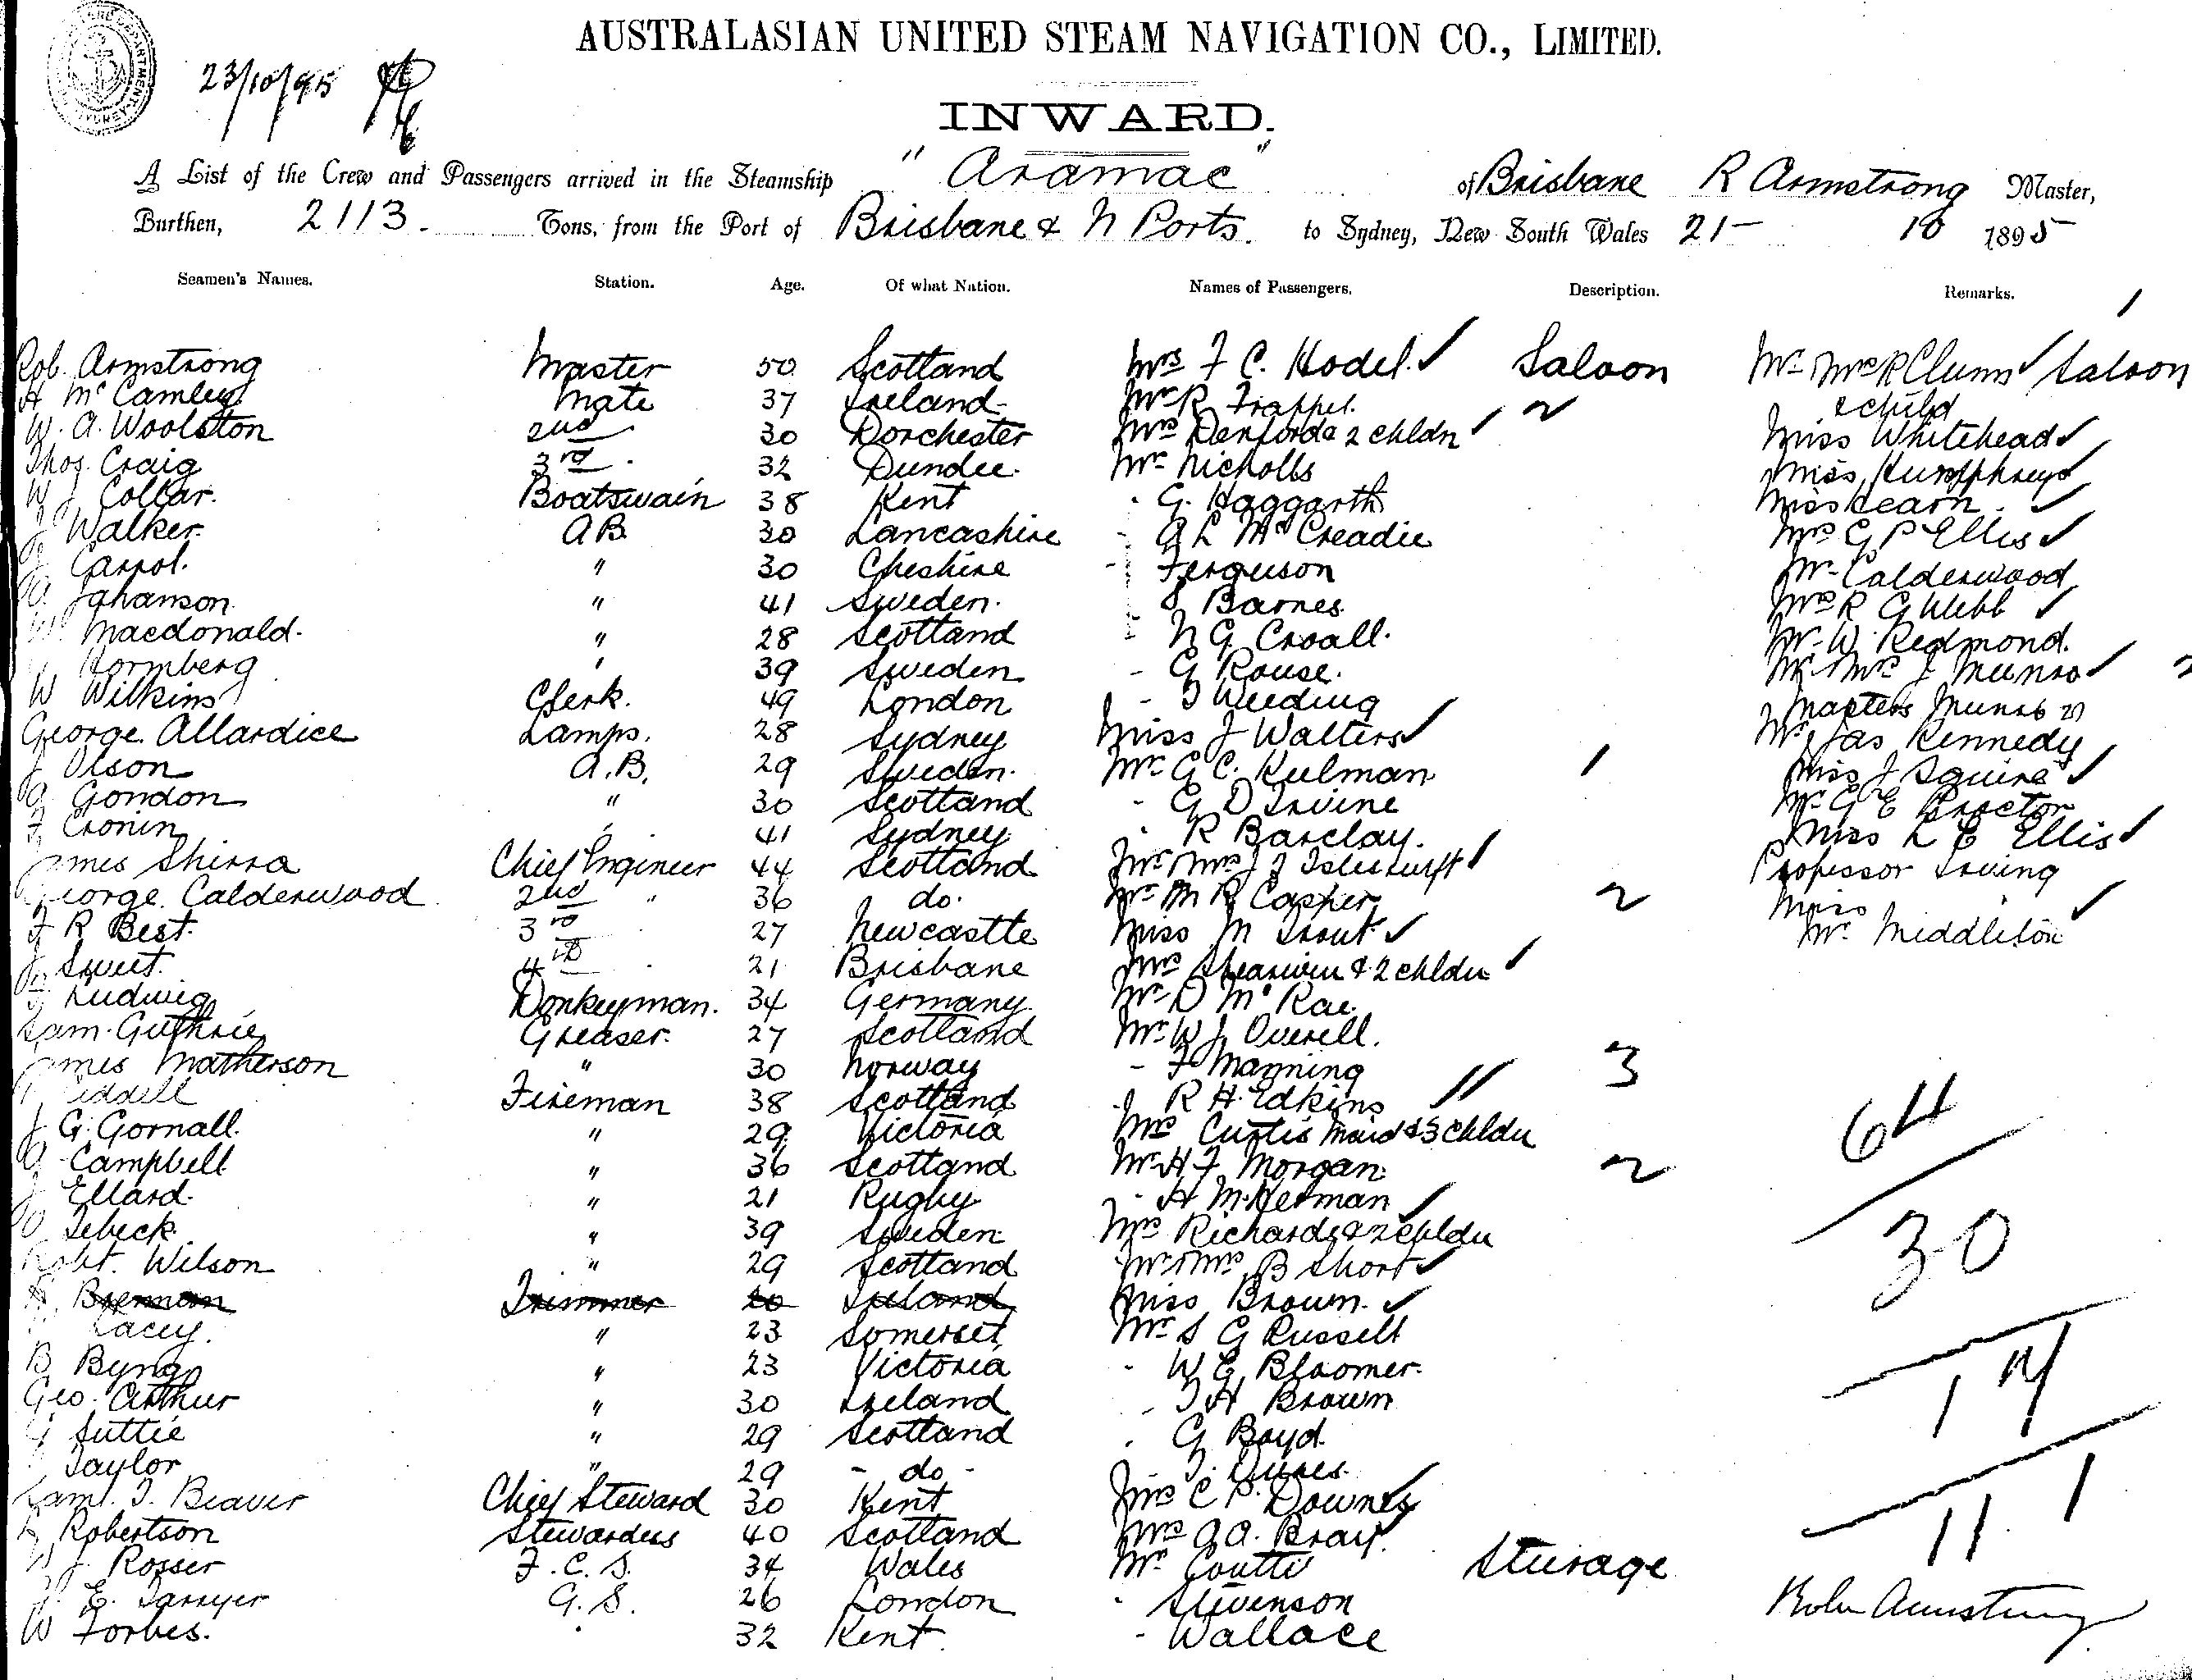 AUSTRALASIAN UNITED STEAM NAVIGATION CO., LIMITED.
23/10/95
INWARD.
A List of the Crew and Passengers arrived in the Steamship "Aramac" of Brisbane R Armstrong Master,
Burthen, 2113 Tons, from the Port of Brisbane & N Ports. to Sydney, New South Wales 21 - 10 1895
Seamen's Names. Station. Age. Of what Nation. Names of Passengers. Description. Remarks.
Rob. Armstrong Master 50 Scotland Mrs F C. Hodel. Saloon Mr Mrs R Clunn Saloon
H McCamley Mate 37 Ireland Mr R Frappel. & child
W. A. Woolston 2nd 30 Dorchester Mrs Danford & 2 chldn 2 Miss Whitehead
Thos. Craig 3rd 32 Dundee Mr Nicholls Miss Humphreys
W J Collar. Boatswain 38 Kent - G. Haggarth Miss Hearn
J Walker. AB 30 Lancashire - A L McCreadie Mrs G P Ellis
J Carrol. " 30 Cheshire - Ferguson Mr Calderwood
Johanson " 41 Sweden. - S Barnes Mrs R G Webb
W. Macdonald. " 28 Scotland - N G. Croall. Mr W. Redmond.
Hormberg " 39 Sweden - G Rouse. Mr Mrs J Munro 2
W Wilkins Clerk. 49 London - T Weeding Masters Munro 2)
George. Allardice Lamps. 28 Sydney Miss J Walters Mr Jas Kennedy
J Olson A.B. 29 Sweden. Mr G C. Kulman 1 Miss J Squire
Gondon " 30 Scotland - G D Irvine Mr G E Proctor
F Cronin " 41 Sydney - R Barclay. Miss L E Ellis
James Shirra Chief Engineer 44 Scotland Mr Mrs J J Professor Irving
George. Calderwood 2nd " 36 do. Mr M R Casper 2 Miss
F R Best. 3rd 27 Newcastle Miss M Trout Mr. Middleton
J Sweet. 4th 21 Brisbane Mrs & 2 chldn
F Ludwig Donkeyman. 34 Germany. Mr D McRae.
Sam. Guthrie Greaser. 27 Scotland Mr W J Overell.
James Matherson " 30 Norway - F Manning 3
Liddell Fireman 38 Scotland - R H. Edkins 64
J G. Gornall. " 29 Victoria Mrs Curtis Maid & 3 chldn
Campbell " 36 Scotland Mr H F Morgan. 2
J Ellard. " 21 Rugby - H M. Herman
Sebeck. " 39 Sweden Mrs Richards & 2 chldn 30
Robt. Wilson " 29 Scotland Mr Mrs B Short
Brennan Trimmer 20 Ireland Miss Brown.
Lacey. " 23 Somerset Mr S G Russell
B Byng " 23 Victoria - W E Bloomer.
Geo. Arthur " 30 Ireland - T H Brown 14
G Suttie " 29 Scotland - G Boyd.
Taylor " 29 - do -
Saml. T. Beaver Chief Steward 30 Kent Mrs C P. Downes 1
Robertson Stewardess 40 Scotland Mrs A A. Bray. 11
W J. Rosser F. C. S. 34 Wales Mr Coutts Steerage
E. Sawyer G. S. 26 London - Stevenson Robr Armstrong
W Forbes. 32 Kent - Wallace